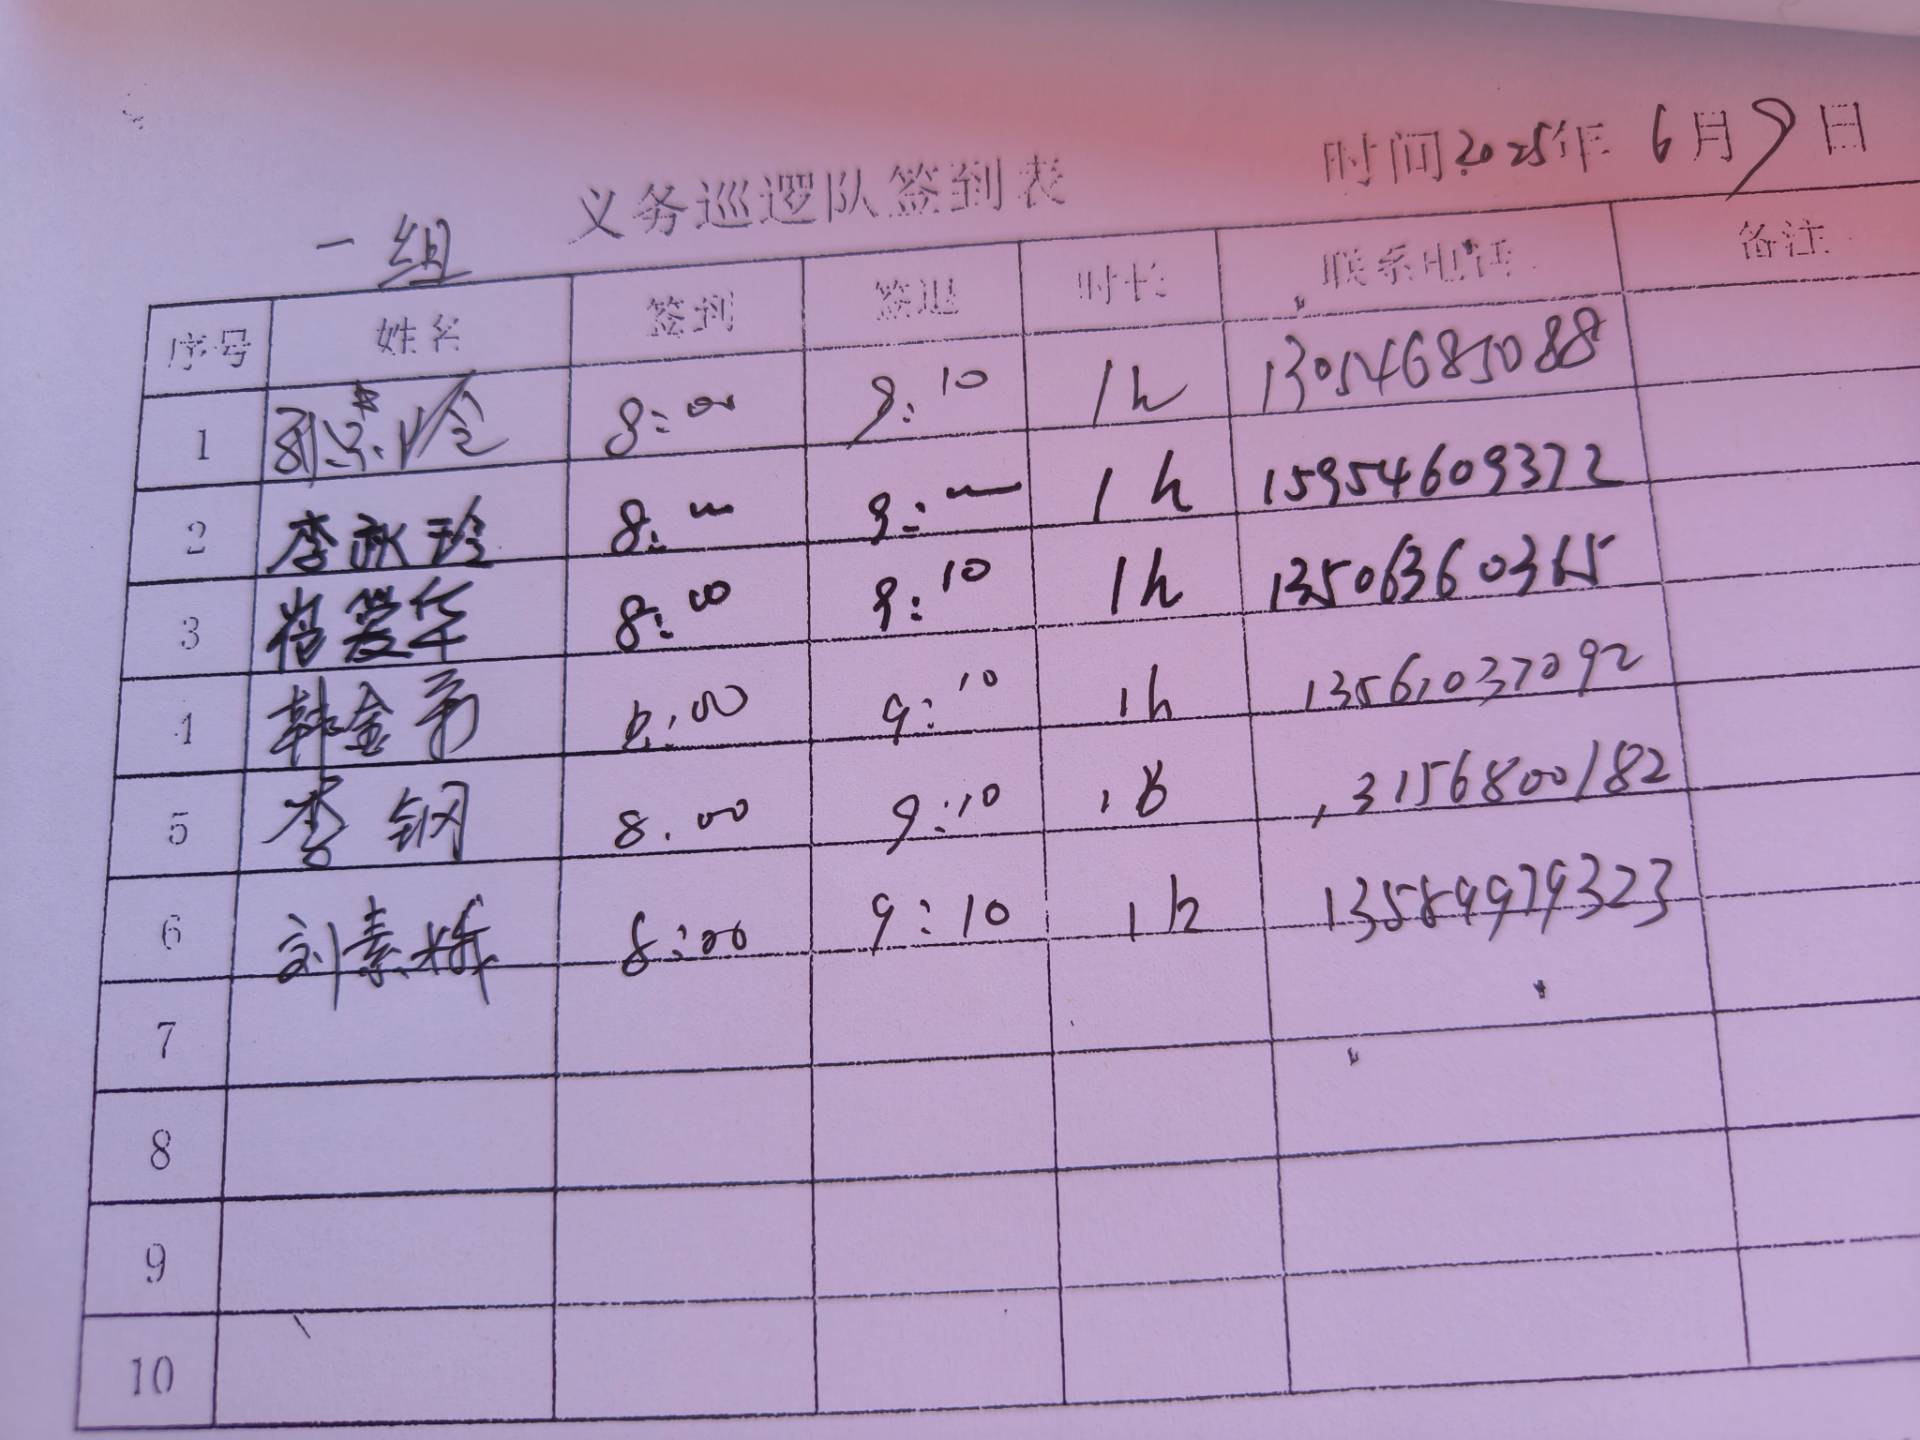 时间2025年6月9日
义务巡逻队签到表
一组
序号 姓名 签到 签退 时长 联系电话 备注
1 8:00 9:10 1h 13054685088
2 李秋玲 8:00 9:00 1h 15954609372
3 肖爱华 8:00 9:10 1h 13506360365
4 韩金 8:00 9:10 1h 13561037092
5 李钢 8.00 9:10 1h 13156800182
6 刘素娥 8:00 9:10 1h 13589979323
7
8
9
10